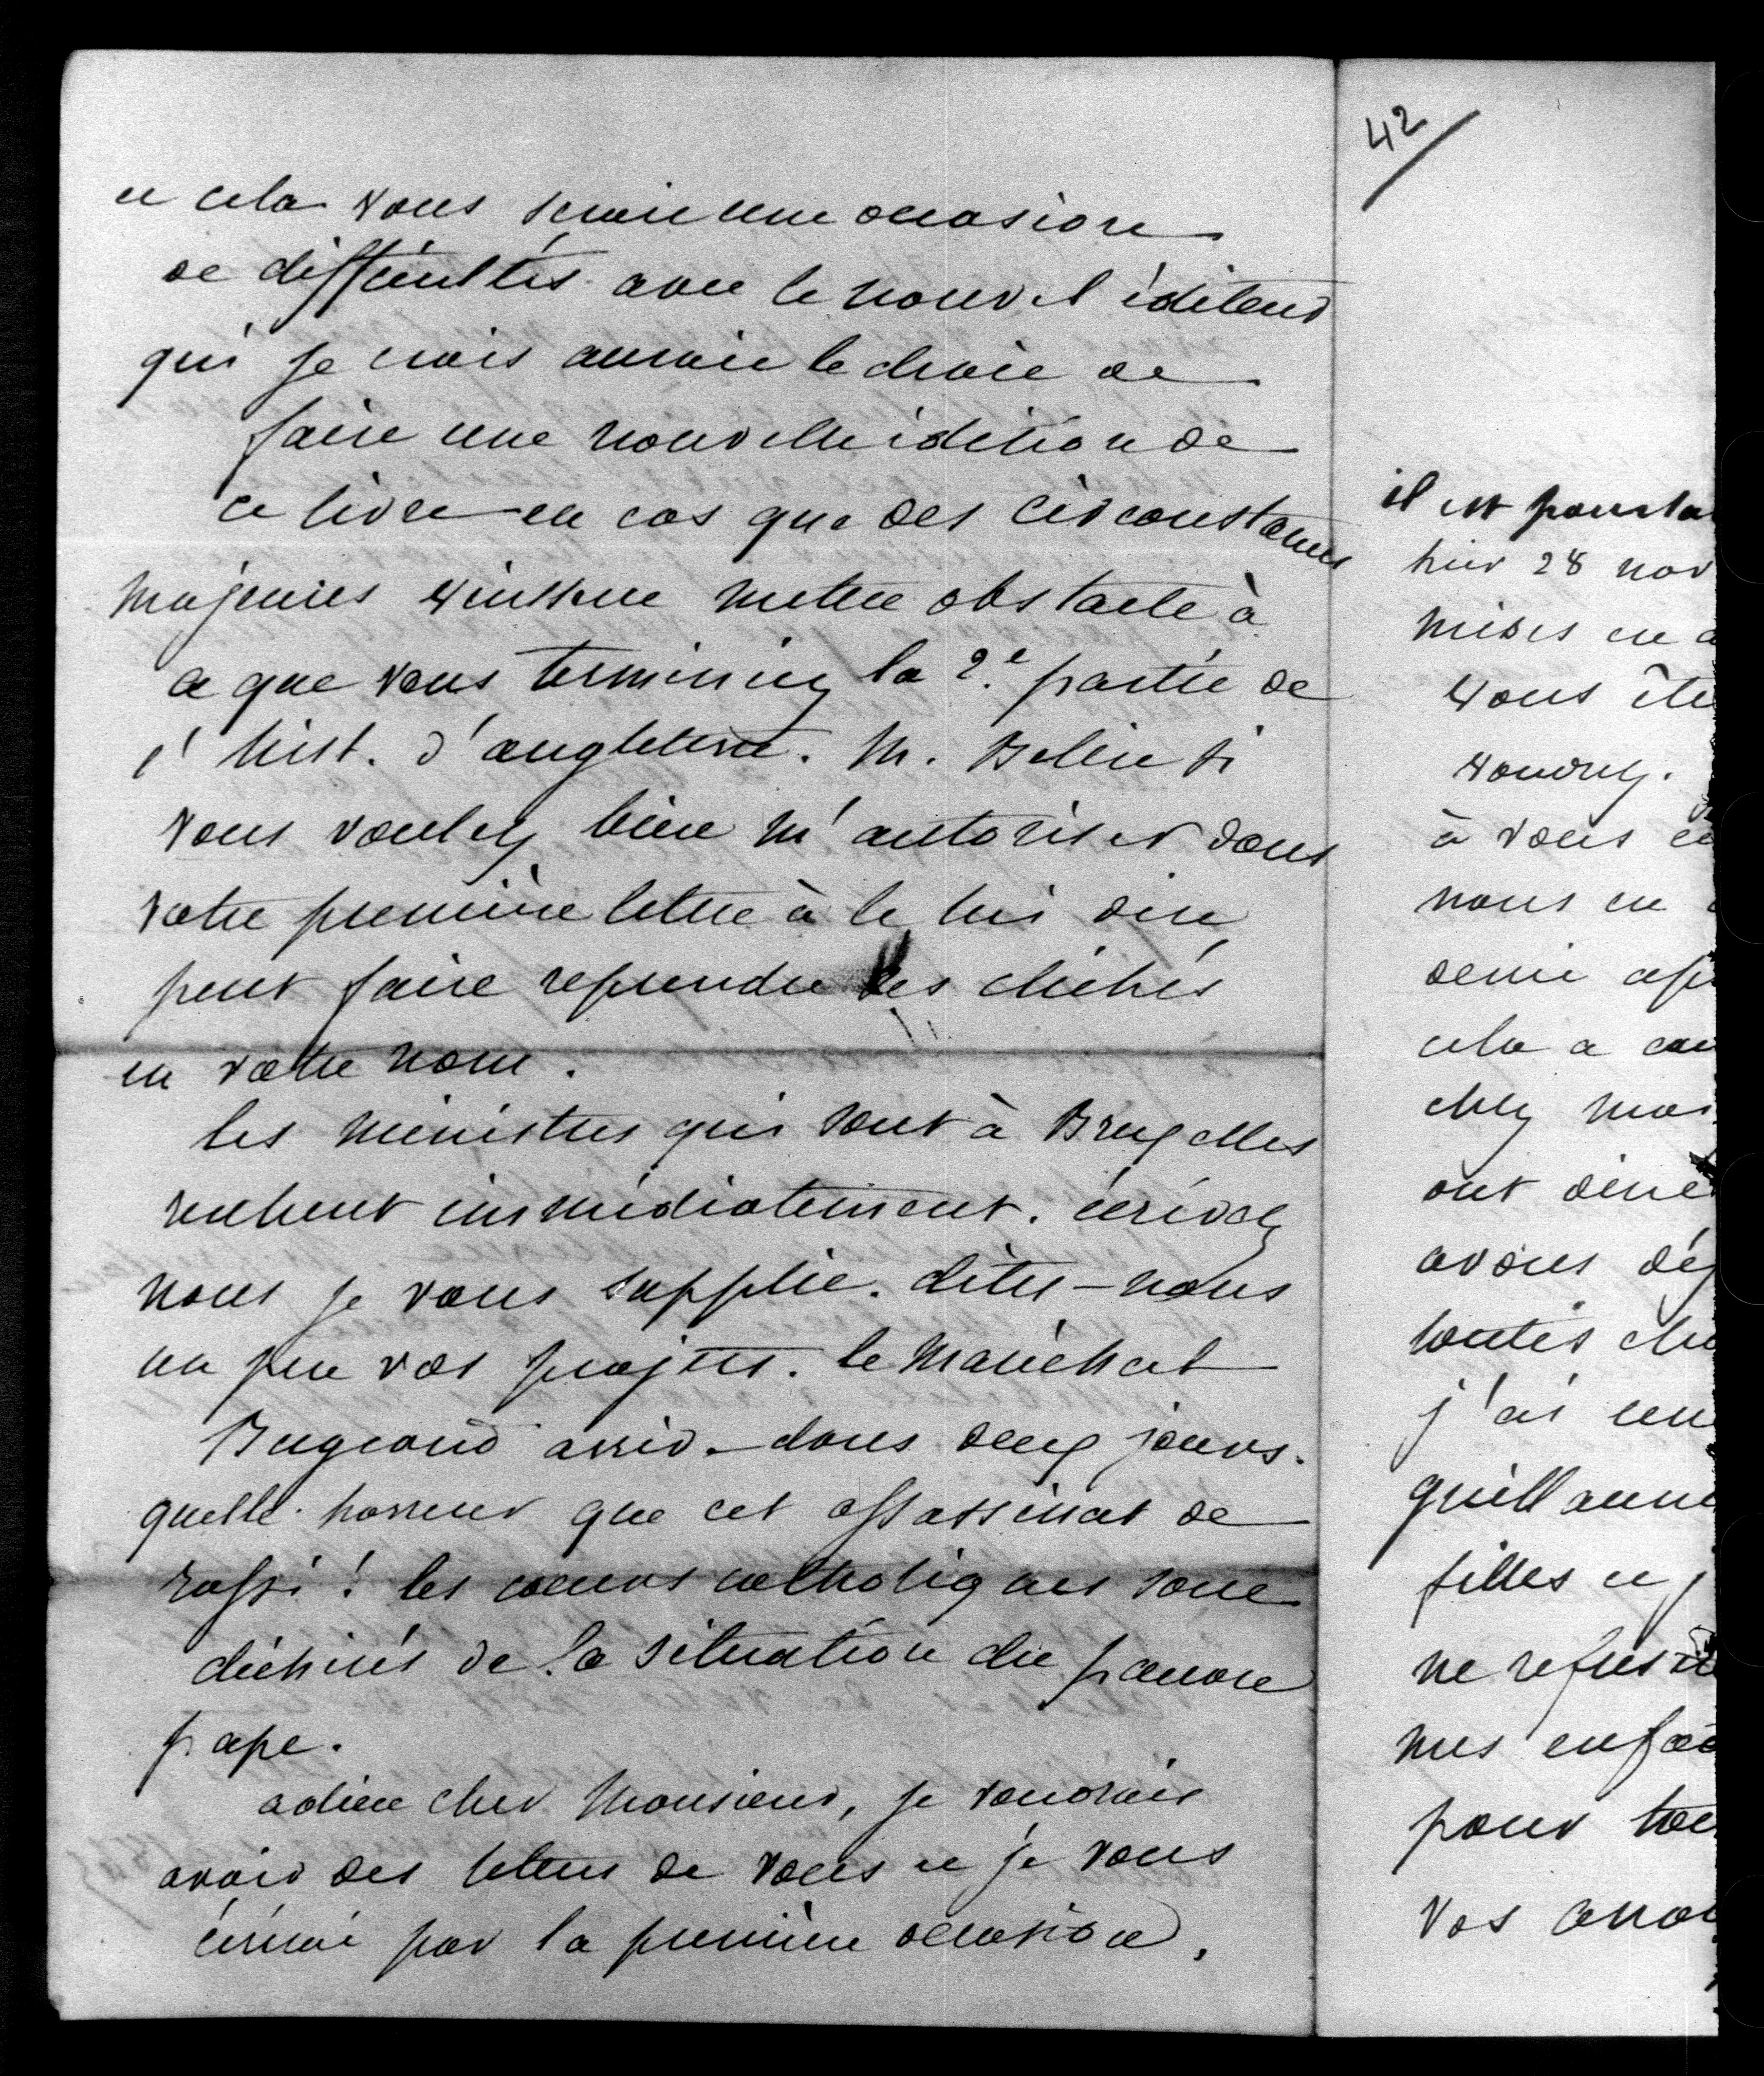 et cela vous serait une occasion
de difficultés avec le nouvel éditeur
qui je crois aurait le droit de
faire une nouvelle édition de
ce livre en cas que des circonstances
majeures vinssent mettre obstacle à
ce que vous terminiez la 2e. partie de
l'hist. d'angleterre. M. Belin si
vous voulez bien m'autoriser dans
votre première lettre à le lui dire
peut faire reprendre les clichés
en votre nom.
les ministres qui sont à Bruxelles
rentrent immédiatement. écrivez
nous je vous supplie. dites-nous
un peu vos projets. le Maréchal
Bugeaud arrive dans deux jours.
quelle horreur que cet assassinat de
rossi! les coeurs catholiques sont
déchirés de la situation du pauvre
pape.
adieu cher Monsieur, je voudrais
avoir des lettres de vous et je vous
écrirai par la première occasion.
42
il est pourta
hier 28 nov
mises en a
vous ête
voudrez.
à vous
nous en
demi
cela a
chez moi
ont diné
avons
toutes
j'ai
filles et
ne refus
mes enfa
pour
Vos